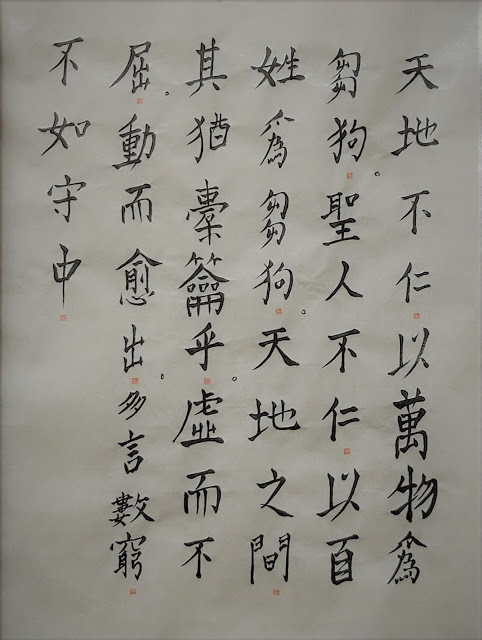 天地不仁以萬物爲
芻狗。聖人不仁以百
姓爲芻狗。天地之間
其猶橐籥乎。虛而不
屈。動而愈出。多言數窮
不如守中